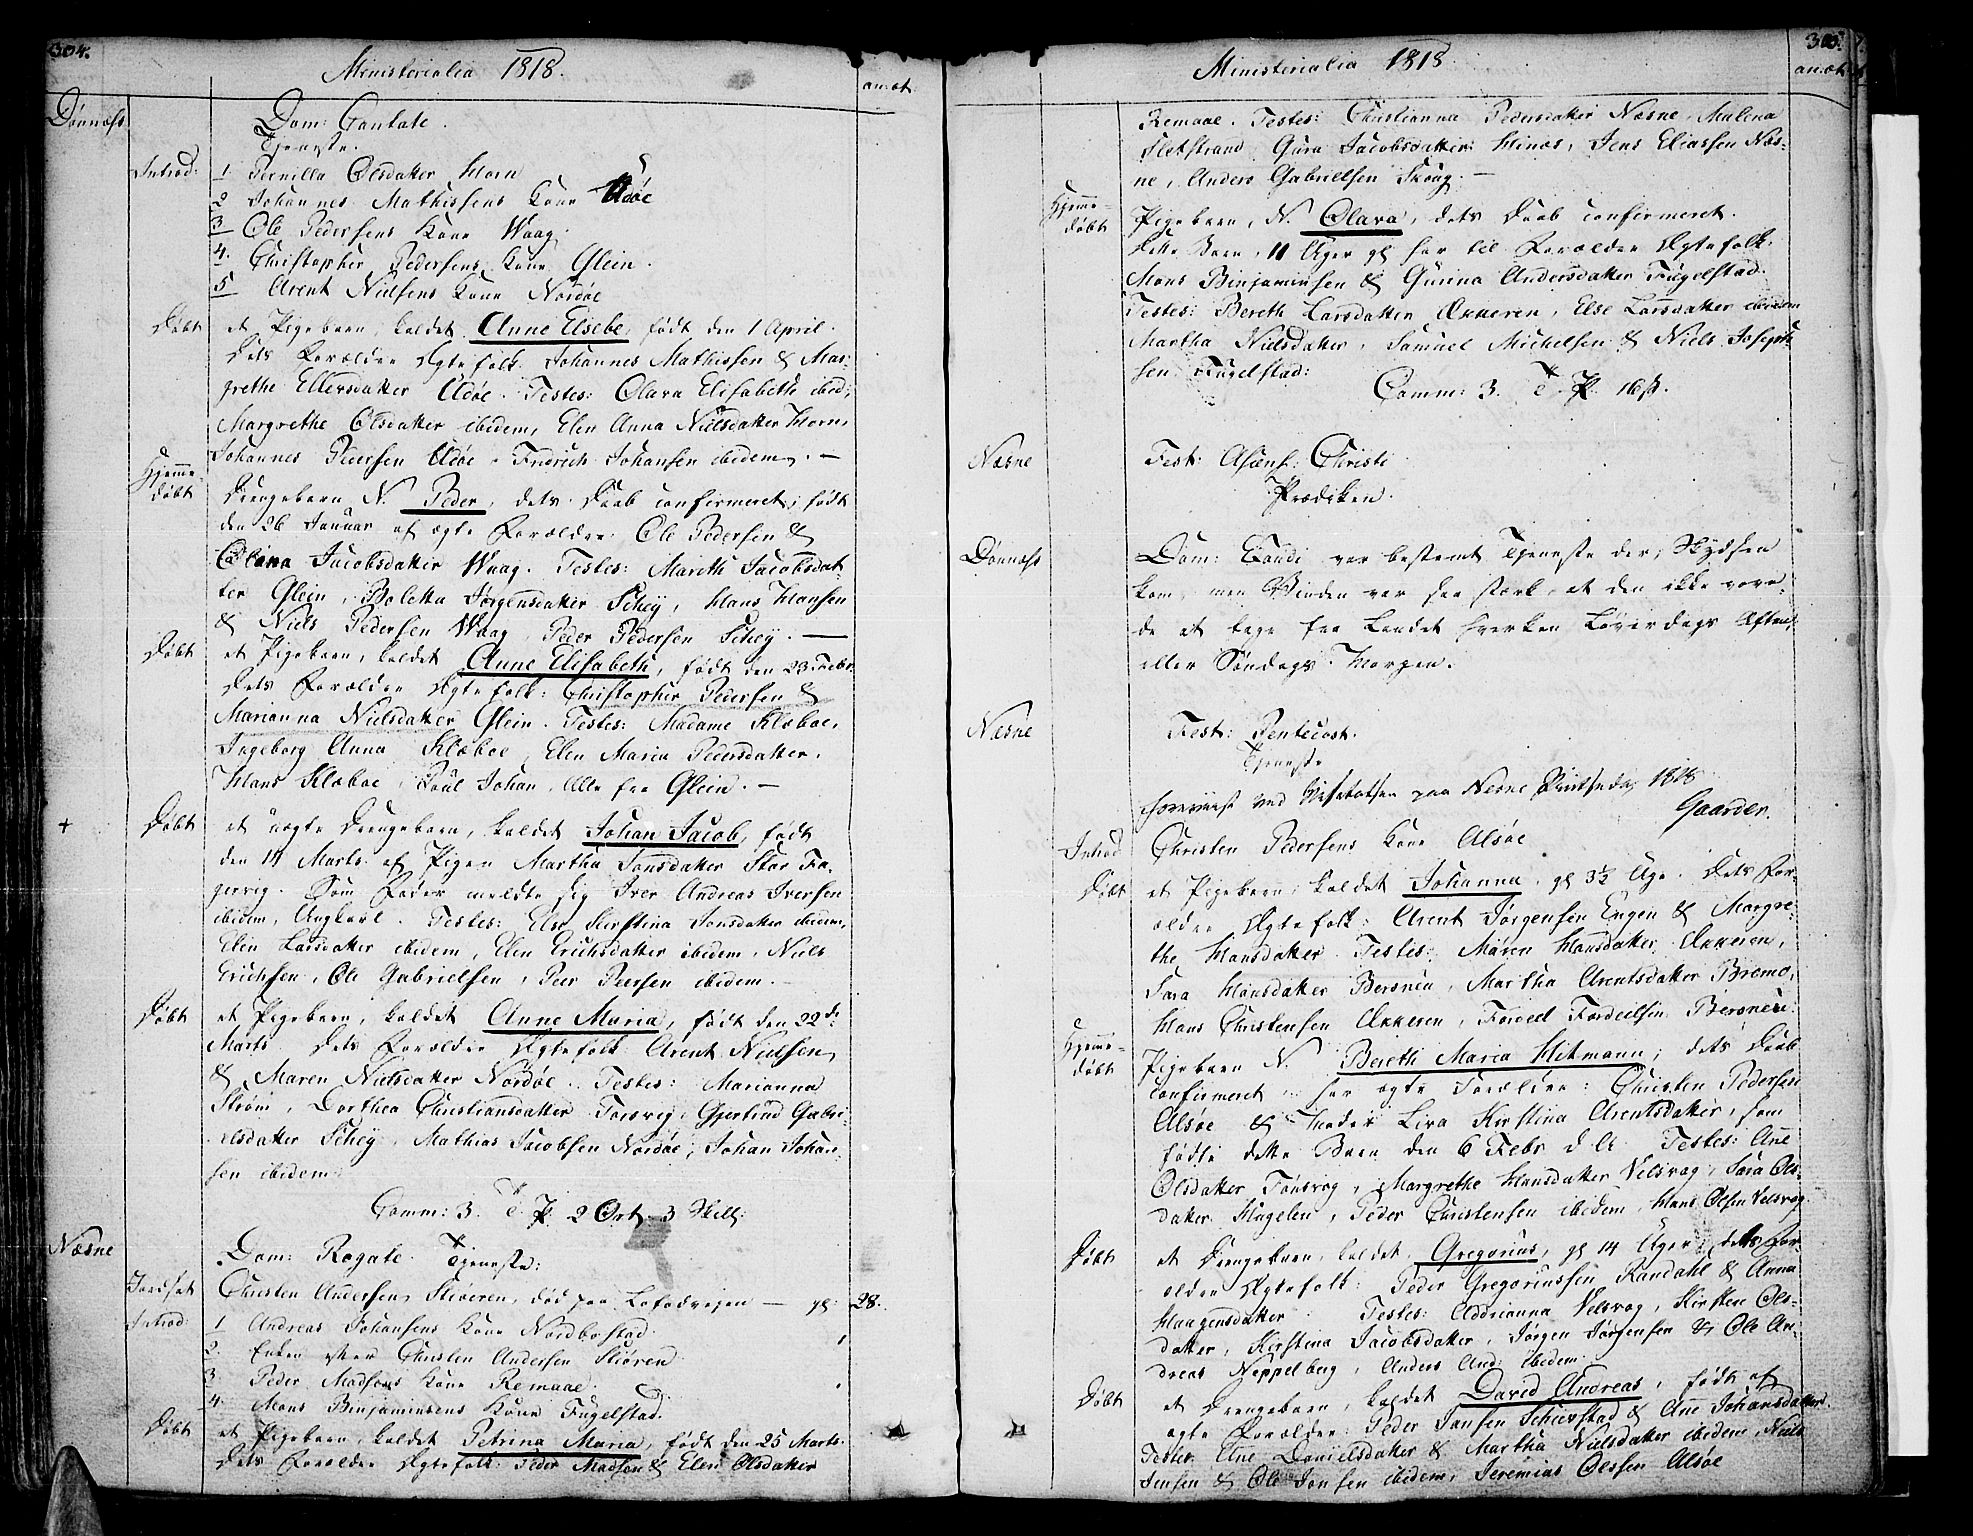 304.
Ministerialia 1818.
an: æt.
Dønnæs
Dom: Cantate.
Tjeneste.
Introd: 1 Pernilla Olsdatter Horn
2 Johannes Mathissens Kone Udøe
3 Ole Pedersens Kone Waag.
4. Christopher Pedersens Kone Glein.
5 Arent Nielsens Kone Nordøe
Døbt et Pigebarn, kaldet Anne Elsebe, født den 1 April.
Dets Forældre Ægtefolk Johannes Mathissen & Mar-
grethe Ellersdatter Udøe. Testes: Olava Elisabeth ibid:
Margrethe Olsdatter ibidem, Elen Anna Nielsdatter Horn,
Johannes Pedersen Udøe, Fridrich Johansen ibidem. —
Hjemme-
døbt Drengebarn N. Peder, dets Daab confirmeret, født
den 26 Januar af ægte Forældre: Ole Pedersen &
Olina Jacobsdatter Waag. Testes: Mareth Jacobsdat-
ter Glein, Boletta Jørgensdatter Schey, Hans Hansen
& Niels Pedersen Waag, Peder Pedersen Schey. —
Døbt et Pigebarn, kaldet Anne Elisabeth, født den 23 Febr.
Dets Forældre Ægtefolk: Christopher Pedersen &
Marianna Nielsdatter Glein. Testes: Madame Klæboe,
Ingeborg Anna Klæboe, Elen Maria Pedersdatter.
Hans Klæboe, Poul Johan, Alle fra Glein. —
+ Døbt et uægte Drengebarn, kaldet Johan Jacob, født
den 14 Marts af Pigen Martha Jonsdatter Stor Fa-
gervig. Som Fader meldte sig Iver Andreas Iversen
ibidem, Ungkarl. Testes: Else Kirstina Jonsdatter ibidem,
Elen Larsdatter ibidem, Elen Erichsdatter ibidem, Niels
Erichsen, Ole Gabrielsen, Peer Peersen ibidem. —
Døbt et Pigebarn, kaldet Anne Maria, født den 22de
Marts. Dets Forældre Ægtefolk Arent Nielsen
& Maren Nielsdatter Nordøe. Testes: Marianna
Strøm, Dorthea Christiansdatter Forsvig, Gjertrud Gabri-
elsdatter Schey, Mathias Jacobsen Nordøe, Johan Johan-
sen ibidem.
Comm: 3. T. P. 2 Ort 3 Skill:
Næsne
Dom: Rogate. Tjeneste:
Jordfæt Christen Andersen Skiøeren, død paa Lofodreisen — gl: 28.
Introd: 1 Andreas Johansens Kone Nordbostad.
2. Enken efter Christen Andersen Skiøren
3 Peder Madsens Kone Remaae.
4. Mons Binjaminsens Kone Fugelstad.
Døbt et Pigebarn, kaldet Petrina Maria, født den 25 Marts.
Dets Forældre Ægtefolk: Peder Madsen & Elen Olsdatter
Ministerialia 1818
305.
an: æt.
Remaae. Testes: Christianna Pedersdatter Næsne, Malena
Sletstrand, Gura Jacobsdatter Hinæs, Jens Eliassen Næs-
ne, Anders Gabrielsen Skoug. —
Hjemme-
døbt Pigebarn, N. Olava, dets Daab confirmeret.
Dette Barn, 11 Uger gl har til Forældre Ægtefolk.
Mons Binjaminsen & Gurina Andersdatter Fugelstad.
Testes: Bereth Larsdatter Økkeren, Else Larsdatter ibidem
Martha Nielsdatter, Samuel Michelsen & Niels Joseph-
sen Fugelstad:
Comm: 3. T. P. 16 s.
Næsne
Fest: Asēns: Christi
Prædiken.
Dønnæs
Dom: Exaudi var bestemt Tjeneste der; Skydsen
kom, men Vinden var saa stærk, at den ikke vove-
de at tage fra Landet hverken Løverdags Aften,
eller Søndags Morgen.
Næsne
Fest: Pentecost.
Tjeneste
Foreviist ved Visitatsen paa Nesne Pintsedag 1818
Gaarder.
Introd Christen Pedersens Kone Alsøe
Døbt et Pigebarn, kaldet Johanna, gl 3½ Uge. Dets For-
ældre Ægtefolk: Arent Jørgensen Engen & Margre-
the Hansdatter. Testes: Maren Hansdatter Økkeren,
Sara Hansdatter Bersnen, Martha Arentsdatter Bremo,
Hans Christensen Økkeren, Fordeel Fordeilsen Bersneu.
Hjemme-
døbt Pigebarn N. Bereth Maria Hitmann, dets Daab
confirmeret, har ægte Forældre: Christen Pedersen
Alsøe & Moder Liva Kirstina Arentsdatter, som
fødte dette Barn den 6 Febr d. A. Testes: Ane
Olsdatter Fonsvog, Margrethe Hansdatter Velsvog, Sara Ols-
datter Hugelen, Peder Christensen ibidem, Hans Olsen Velsvog.
Døbt et Drengebarn, kaldet Gregorius, gl 14 Uger, dets For-
ældre Ægtefolk: Peder Gregoriussen Randahl & Anna
Haagensdatter Testes: Addrianna Velsvog, Kirsten Ols-
datter, Kirstina Jacobsdatter, Jørgen Jørgensen & Ole An-
dreas Neppelberg, Anders And: ibidem.
Døbt et Drengebarn, kaldet David Andreas, født af
ægte Forældre: Peder Jansen Schievstad & Ane Johansdatter.
Testes: Ane Danielsdatter & Martha Nielsdatter ibidem, Niels
Jensen & Ole Jonsen ibidem, Jeremias Olssen Alsøe